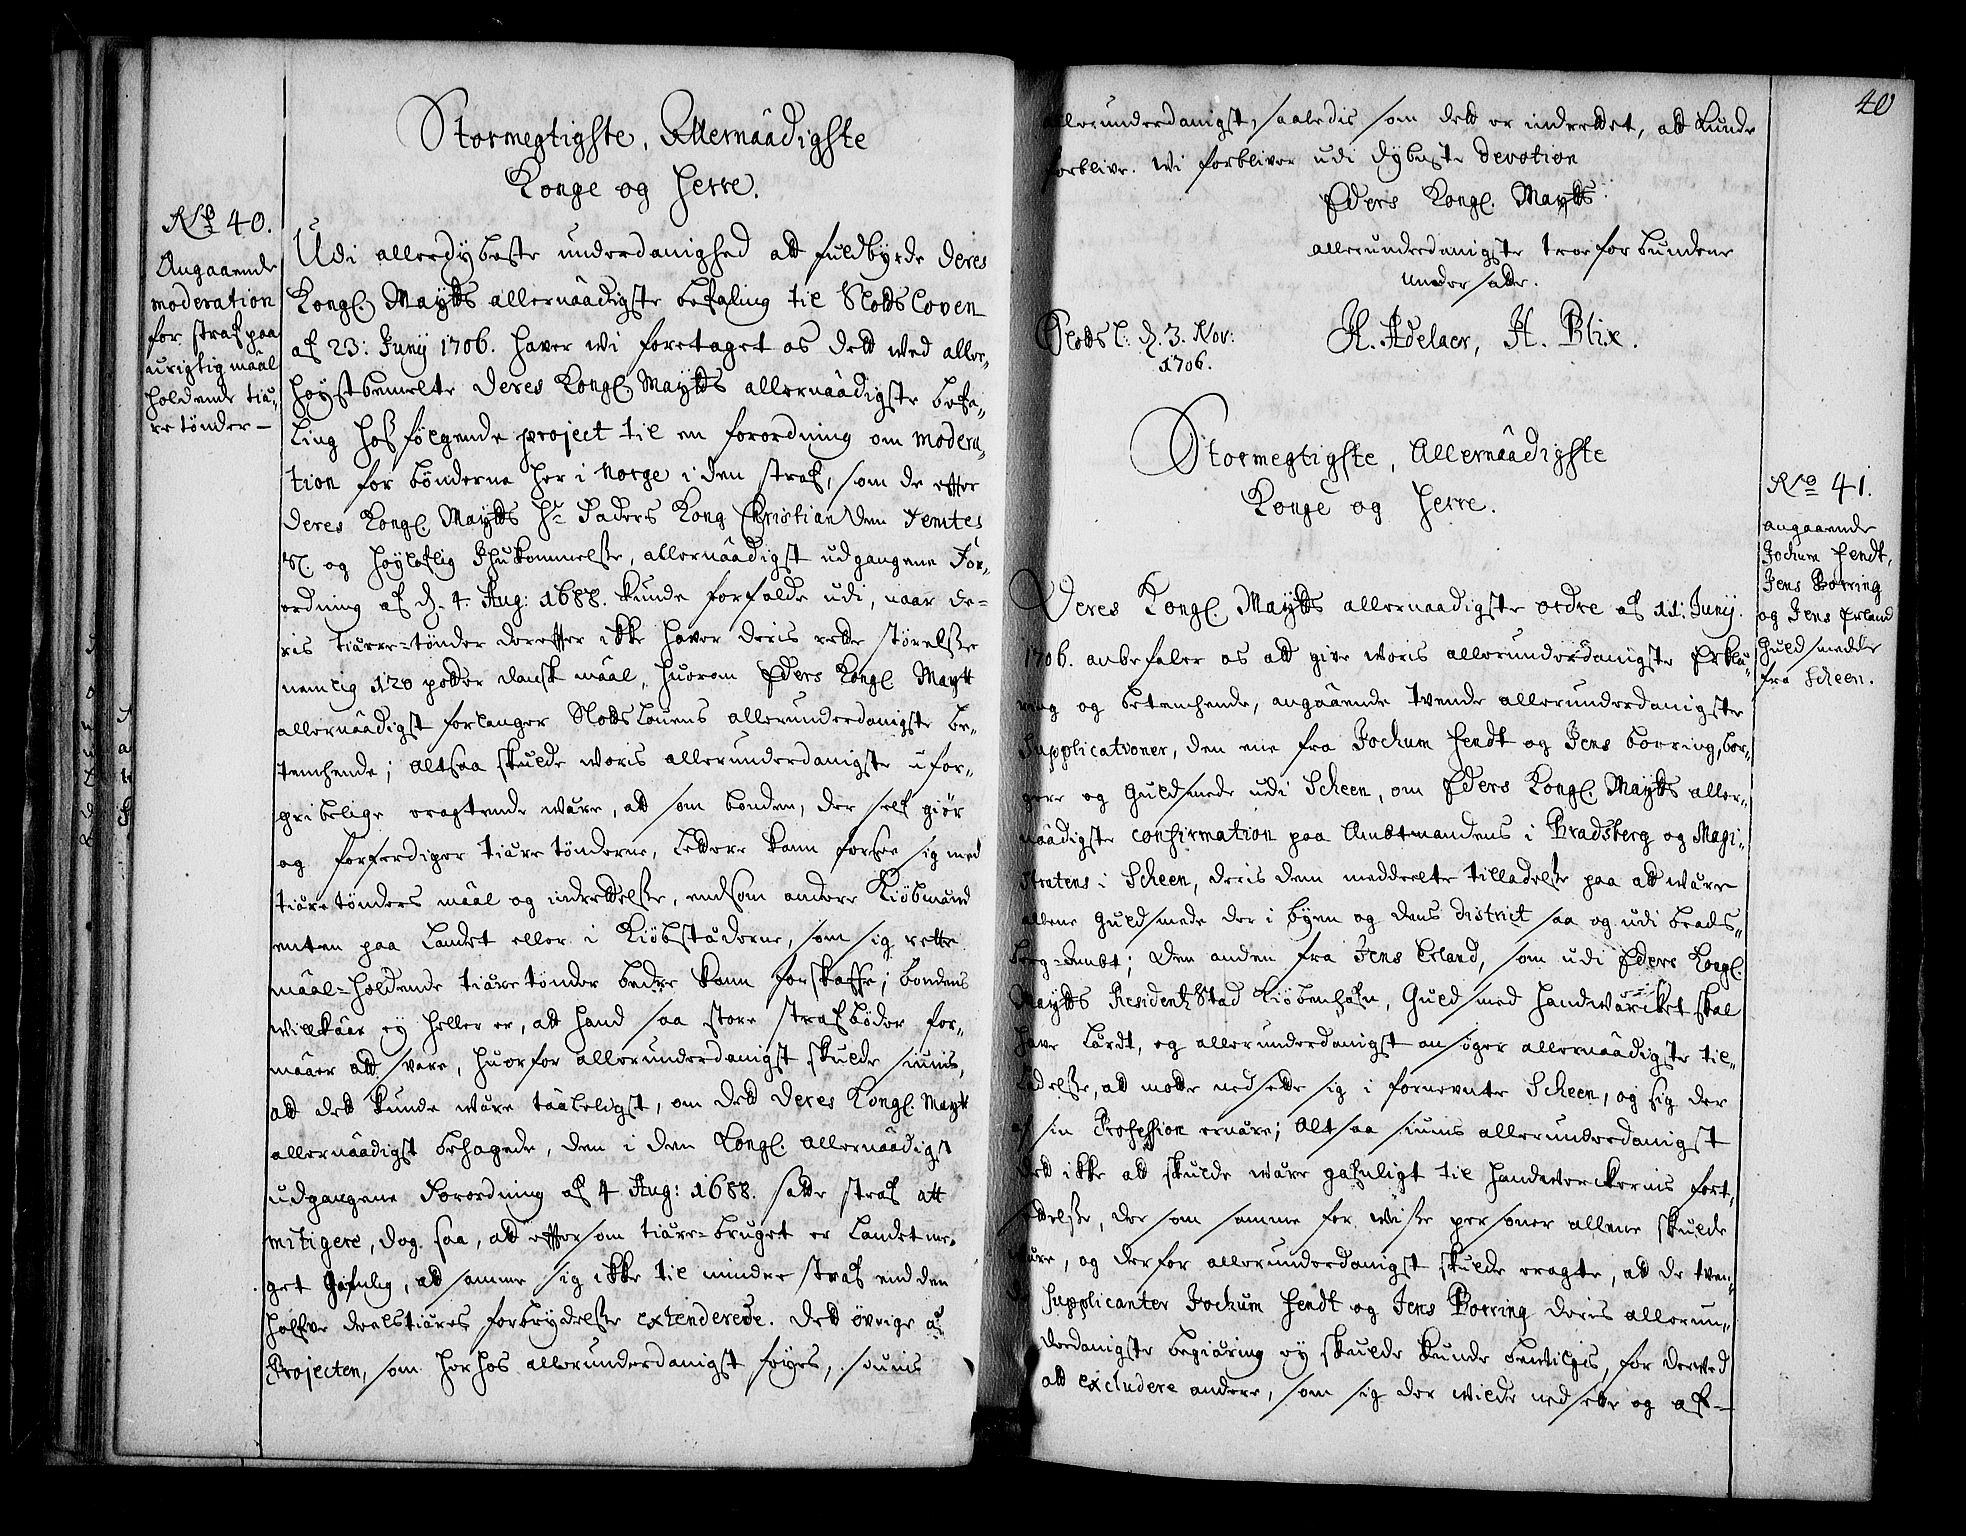 Stormegtigste, Allernaadigste
Konge og Herre.
No 40.
Angaaende
moderation
for straf paa
urigtig maal
holdende tiæ-
re tønder —
Udi allerdybeste underdanighed att fuldbyrde Deres
Kongl. Maytts allernaadigste befaling til Slodsloven
af 23: Junij 1706. haver wi foretaget os dett ved aller-
høystbemelte Deres Kongl. Maytts allernaadigste befa-
ling hosfølgende project til en forordning om modera-
tion for bønderne her i Norge i den straf, som de effter
Deres Kongl. Maytts Hr Faders Kong Christian Dem Femtes
S. og høylovlig Ihukommelse, allernaadigst udgangene For-
ordning af d. 4. Aug: 1688. kunde forfalde udi, naar de-
ris tiære-tønder dereffter ikke haver deris rette størelse
nemlig 120 potter dansk maal, huorom Eders Kongl. Maytt
allernaadigst forlanger Slodslovens allerunderdanigste be-
tenchende; Altsaa skulde woris allerunderdanigste ufor-
gribelige eragtende wære, att som bonden, der self giør
og forferdiger tiæretønderne, lettere kann forsee sig med
tiæretønders maal og indrettelse, end som andere Kiøbmænd
enten paa Landet eller i Kiøbstæderne, som sig rette
maal-holdende tiæretønder bedre kann forskaffe; bondens
willkaar ey heller er, att hand saa store strafbøder for-
maaer att svare, huorfor allerunderdanigst skulde siunis,
att dett kunde wære taaleligst, om dett Deres Kongl. Maytt
allernaadigst behagede, den i den Kongl. allernaadigst
udgangene Forordning af 4 Aug: 1688. satte straf att
mitigere, dog saa, att effter som tiære-bruget er Landet me-
get gafnlig, att samme sig ikke til mindre straf end den
halfve deels tiæres forbrydelse extenderede. Dett øvrige af
Projecten, som herhos allerunderdanigst føyes, siunis
40
allerunderdanigst, saaledis som dett er indrettet, att kunde
forblive. Wi forbliver udi dybeste Devotion
Eders Kongl. Maytts
allerunderdanigste troeforbundene
undersatte.
Slods L: d. 3. Nov:
1706.
H. Adelaer, H. Blix.
Stormegtigste, Allernaadigste
Konge og Herre.
No 41.
angaaende
Jochum Hendt,
Jens Borring
og Jens Erland
Guldsmedde
fra Scheen.
Deres Kongl. Maytts allernaadigste ordre af 11. Junij.
1706. anbefaler os att give woris allerunderdanigste Erklæ-
ring og betenchende, angaaende tvende allerunderdanigste
Supplicationer, den ene fra Jochum Hendt og Jens Borring, bor-
gere og Guldsmede udi Scheen, om Eders Kongl. Maytts aller-
naadigste confirmation paa Ambtmandens i Bradsberg og Magi-
stratens i Scheen, deris dem meddeelte tilladelse paa att wære
allene Guldsmede der i byen og dens district saa og udi brads-
berg-Ambt; Den anden fra Jens Erland, som udi Eders Kongl.
Maytts Residentz Stad Kiøbenhafn, Guldsmed handwærcket skal
have lærdt, og allerunderdanigst ansøger allernaadigste til-
ladelse, att motte nedsette sig i fornevnte Scheen, og sig der
af sin Profession ernære; Altsaa siunis allerunderdanigst
dett ikke att skulde være gafnligt til handwerckernis fort-
settelse, der som samme for wisse personer allene skulde
wære, og derfor allerunderdanigst skulde eragte, att de tven-
de Supplicanter Jochum Hendt og Jens Borring deris allerun-
derdanigste begiæring ey skulde kunde bewilgis, for derved
att excludere andere, som sig der wilde nedsette og af-